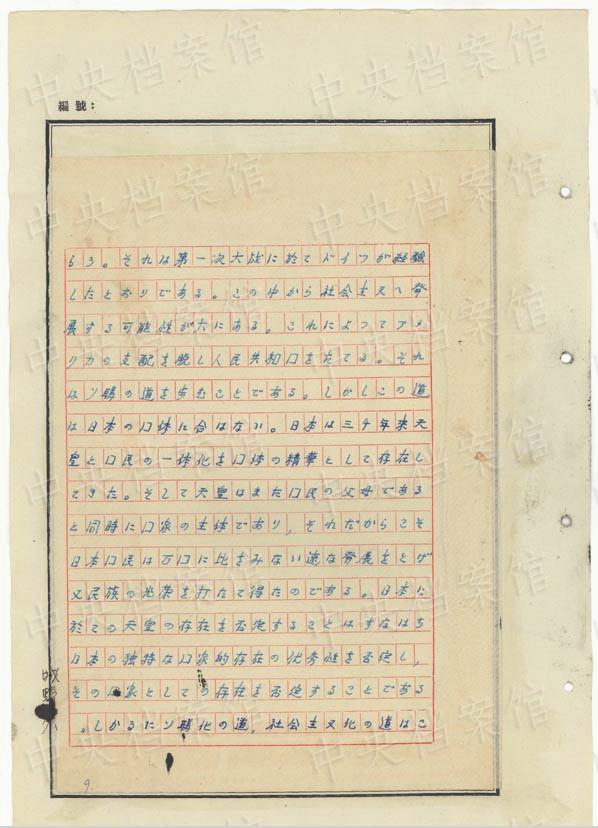 編號：
らう。それは第一次大战に於てドイツが経験
したとおりである。この中から社会主义へ発
展する可能性が大にある。これによってアメ
リカの支配を脱し人民共和口をたてる。それ
はソ聯の道を歩むことである。しかしこの道
は日本の口体に合はない。日本は三千年来天
皇と口民の一体化を口体の精華として存在し
てきた。そして天皇はまた口民の父母である
と同時に口家の主体であり，それだからこそ
日本口民は万口に比をみない速な発展をとげ
又民族の光栄を打たて得たのである。日本に
於ての天皇の存在を否定することはすなはち
日本の独特な口家的存在の优秀性を否定し，
その口家としての存在を否定することである
。しかるにソ聯化の道，社会主义化の道はこ
9
中央档案馆